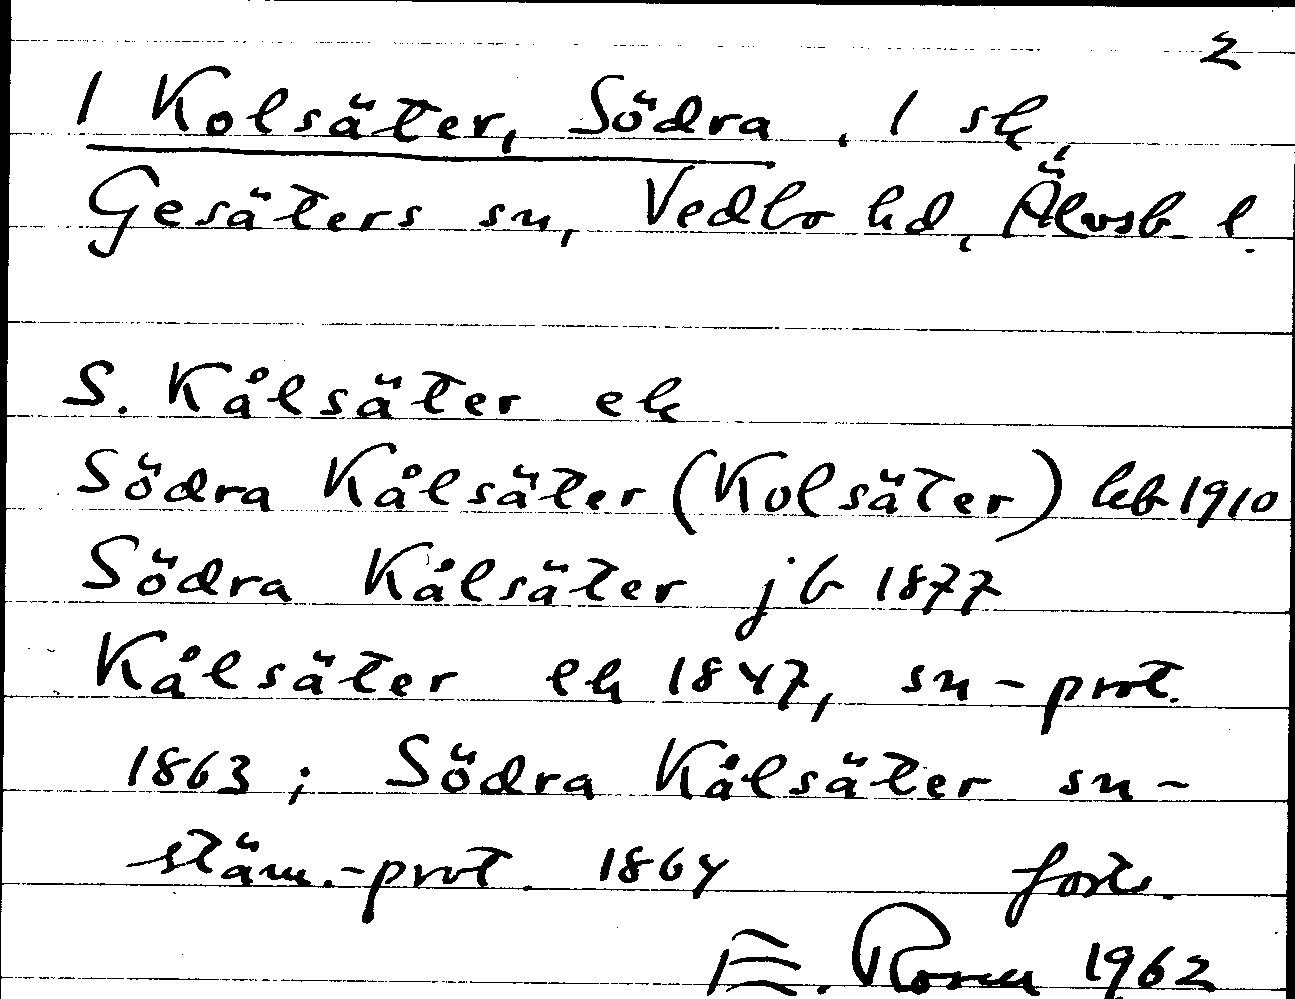 2
1 Kolsäter, Södra. 1 sk,
Gesäters sn, Vedbo hd, Älvsb. l.
S. Kålsäter ek
Södra Kålsäter (Kolsäter) kb 1910
Södra Kålsäter jb 1877
Kålsäter lk 1847, sn-prot.
1863; Södra Kålsäter sn-
stäm.-prot. 1864 forts.
E. 1962